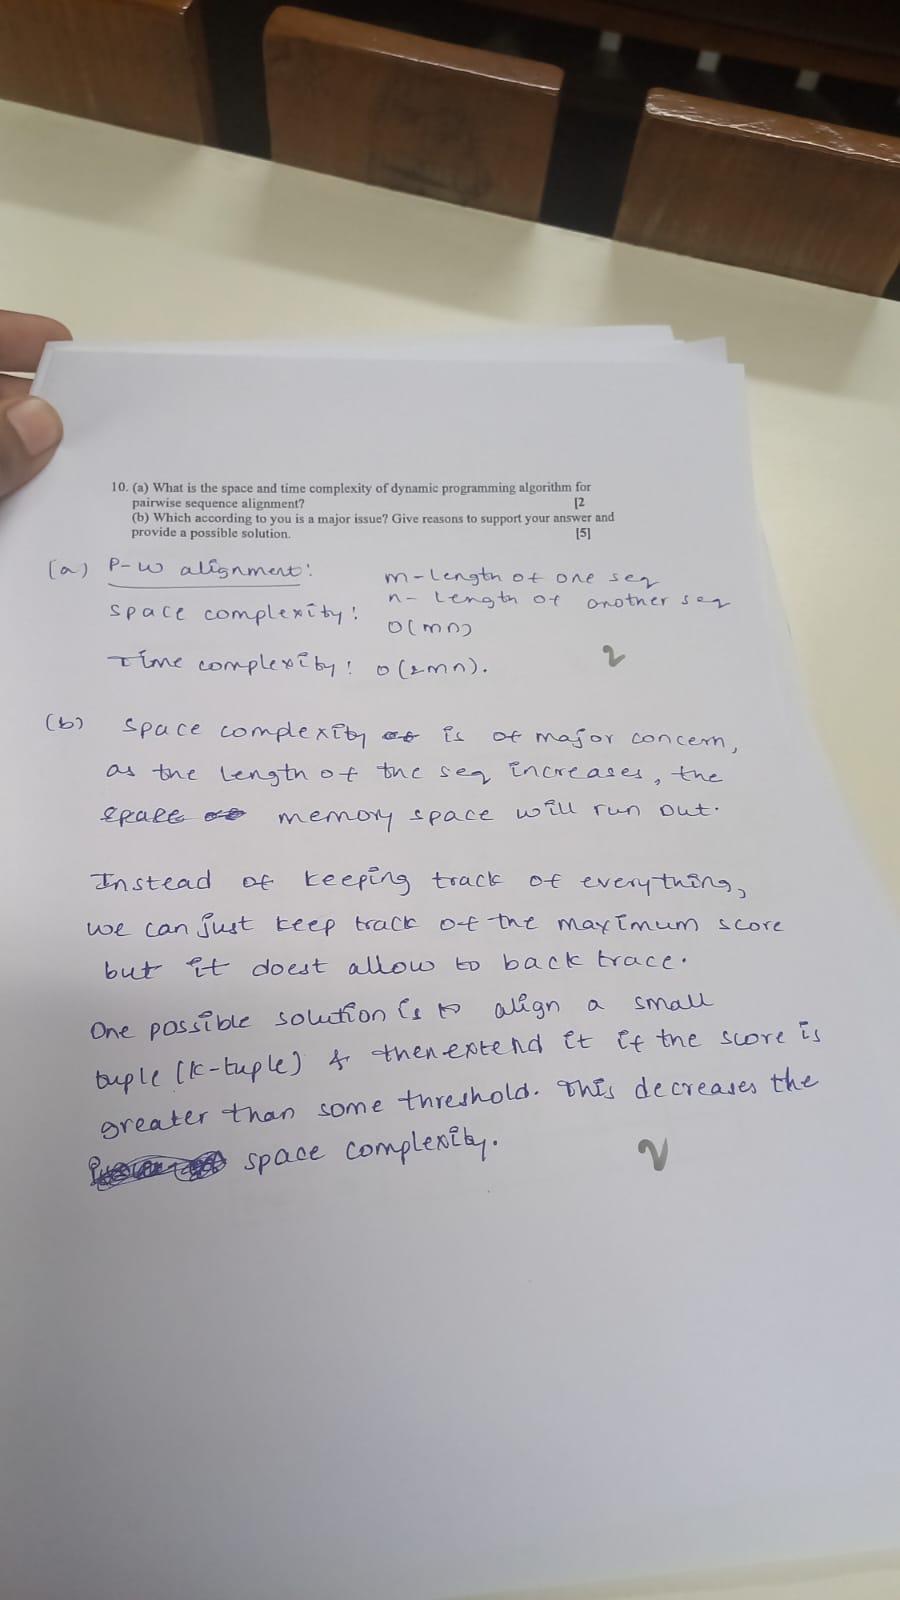 10. (a) What is the space and time complexity of dynamic programming algorithm for
pairwise sequence alignment? [2
(b) Which according to you is a major issue? Give reasons to support your answer and
provide a possible solution. [5]
(a) P-W alignment:
m-length of one seq
n- length of another seq
space complexity: O(mn)
Time complexity: O(2mn).
2
(b) space complexity is of major concern,
as the length of the seq increases, the
space memory space will run out.
Instead of keeping track of everything,
we can just keep track of the maximum score
but it doest allow to back trace.
One possible solution is to align a small
tuple (k-tuple) & then extend it if the score is
greater than some threshold. This decreases the
space complexity.
2